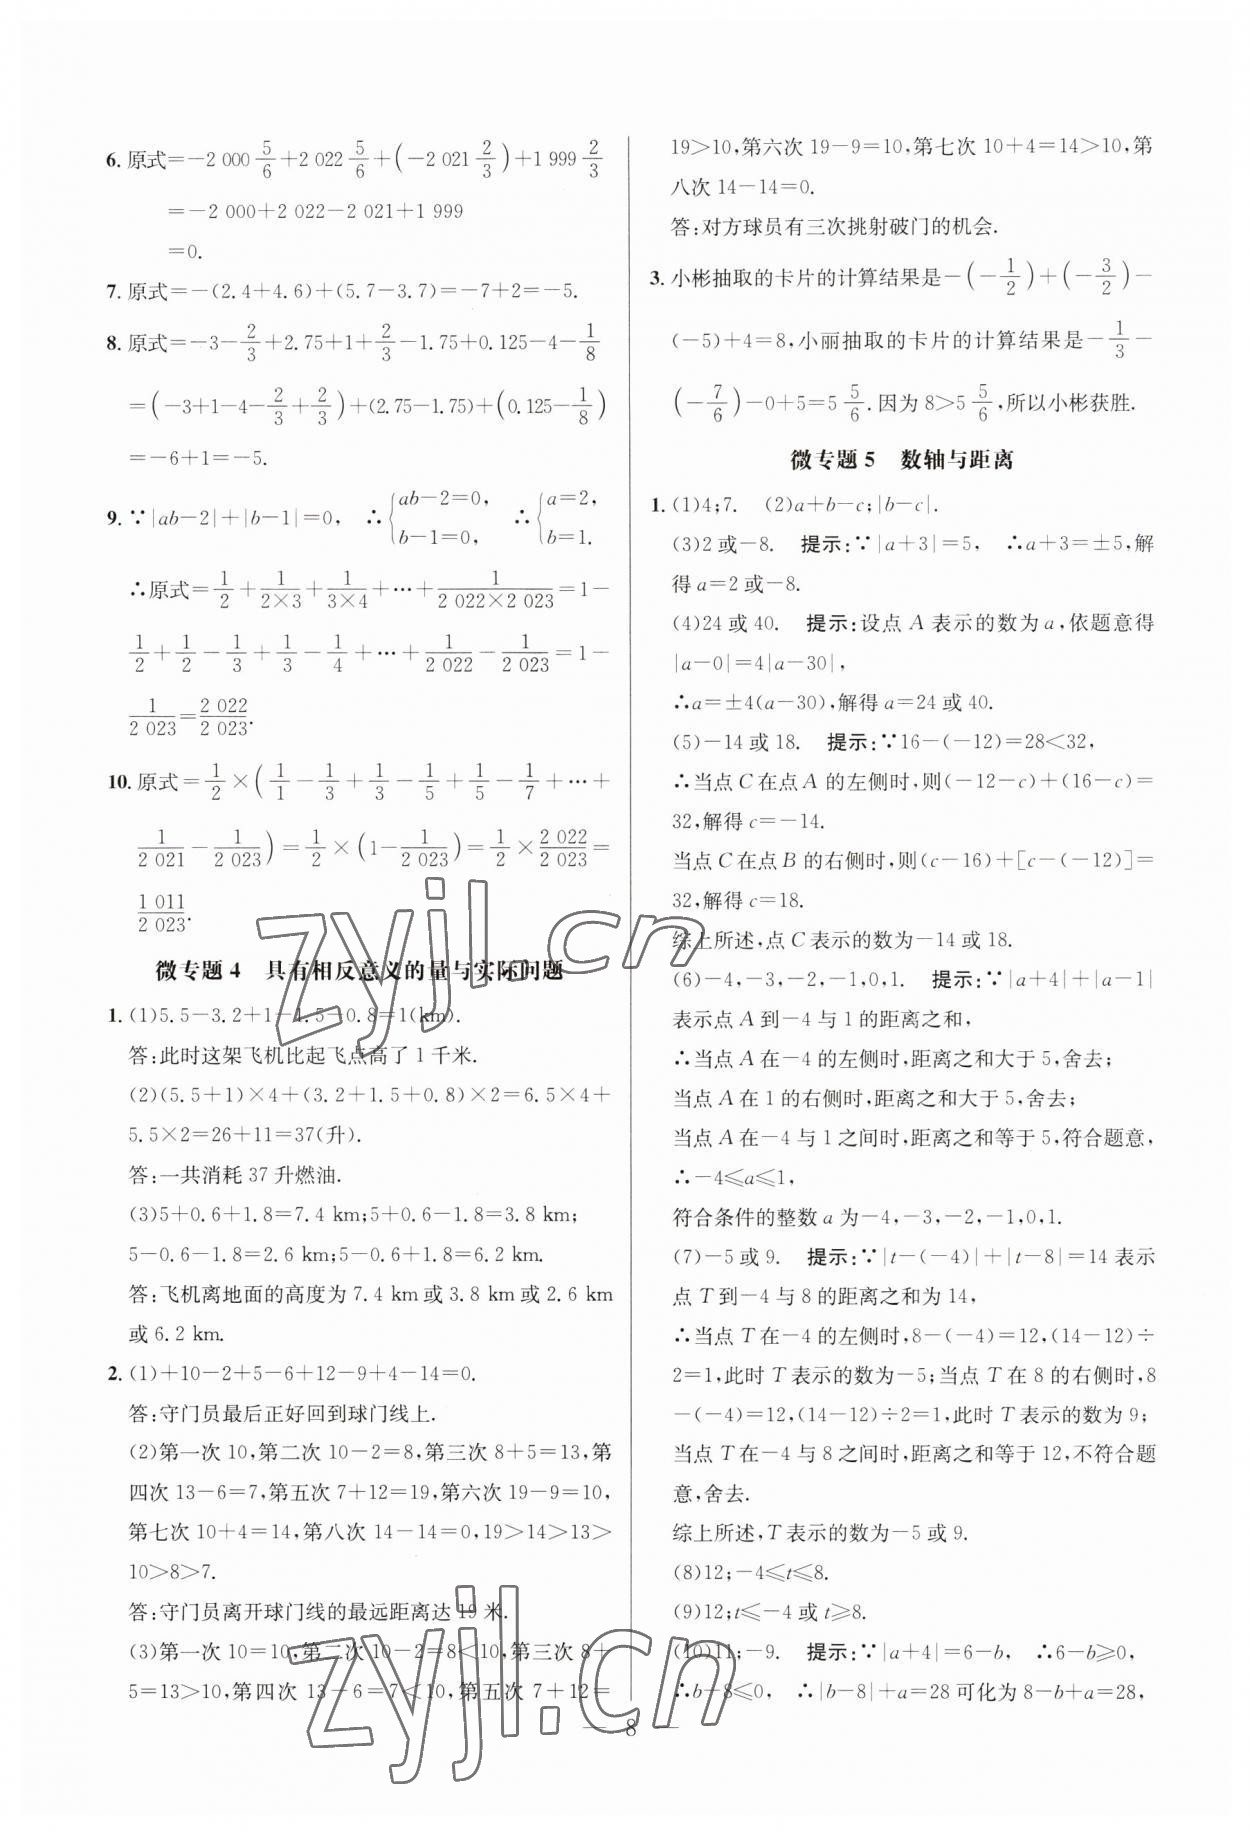 6. 原式=-2 000 5/6+2 022 5/6+(-2 021 2/3)+1 999 2/3
=-2 000+2 022-2 021+1 999
=0.
7. 原式=-(2.4+4.6)+(5.7-3.7)=-7+2=-5.
8. 原式=-3-2/3+2.75+1+2/3-1.75+0.125-4-1/8
=(-3+1-4-2/3+2/3)+(2.75-1.75)+(0.125-1/8)
=-6+1=-5.
9. ∵|ab-2|+|b-1|=0, ∴{ab-2=0, b-1=0, ∴{a=2, b=1.
∴原式=1/2+1/(2×3)+1/(3×4)+…+1/(2 022×2 023)=1-
1/2+1/2-1/3+1/3-1/4+…+1/2 022-1/2 023=1-
1/2 023=2 022/2 023.
10. 原式=1/2×(1/1-1/3+1/3-1/5+1/5-1/7+…+
1/2 021-1/2 023)=1/2×(1-1/2 023)=1/2×2 022/2 023=
1 011/2 023.
微专题 4 具有相反意义的量与实际问题
1. (1)5.5-3.2+1-1.5-0.8=1(km).
答:此时这架飞机比起飞点高了 1 千米.
(2)(5.5+1)×4+(3.2+1.5+0.8)×2=6.5×4+
5.5×2=26+11=37(升).
答:一共消耗 37 升燃油.
(3)5+0.6+1.8=7.4 km;5+0.6-1.8=3.8 km;
5-0.6-1.8=2.6 km;5-0.6+1.8=6.2 km.
答:飞机离地面的高度为 7.4 km或 3.8 km或 2.6 km
或 6.2 km.
2. (1)+10-2+5-6+12-9+4-14=0.
答:守门员最后正好回到球门线上.
(2)第一次 10,第二次 10-2=8,第三次 8+5=13,第
四次 13-6=7,第五次 7+12=19,第六次 19-9=10,
第七次 10+4=14,第八次 14-14=0,19>14>13>
10>8>7.
答:守门员离开球门线的最远距离达 19 米.
(3)第一次 10=10,第二次 10-2=8<10,第三次 8+
5=13>10,第四次 13-6=7<10,第五次 7+12=
19>10,第六次 19-9=10,第七次 10+4=14>10,第
八次 14-14=0.
答:对方球员有三次挑射破门的机会.
3. 小彬抽取的卡片的计算结果是-(-1/2)+(-3/2)-
(-5)+4=8,小丽抽取的卡片的计算结果是-1/3-
(-7/6)-0+5=5 5/6.因为 8>5 5/6,所以小彬获胜.
微专题 5 数轴与距离
1. (1)4;7. (2)a+b-c;|b-c|.
(3)2 或-8. 提示:∵|a+3|=5, ∴a+3=±5,解
得 a=2 或-8.
(4)24 或 40. 提示:设点 A 表示的数为 a,依题意得
|a-0|=4|a-30|,
∴a=±4(a-30),解得 a=24 或 40.
(5)-14 或 18. 提示:∵16-(-12)=28<32,
∴当点 C 在点 A 的左侧时,则(-12-c)+(16-c)=
32,解得 c=-14.
当点 C 在点 B 的右侧时,则(c-16)+[c-(-12)]=
32,解得 c=18.
综上所述,点 C 表示的数为-14 或 18.
(6)-4,-3,-2,-1,0,1. 提示:∵|a+4|+|a-1|
表示点 A 到-4 与 1 的距离之和,
∴当点 A 在-4 的左侧时,距离之和大于 5,舍去;
当点 A 在 1 的右侧时,距离之和大于 5,舍去;
当点 A 在-4 与 1 之间时,距离之和等于 5,符合题意,
∴-4≤a≤1,
符合条件的整数 a 为-4,-3,-2,-1,0,1.
(7)-5 或 9. 提示:∵|t-(-4)|+|t-8|=14 表示
点 T 到-4 与 8 的距离之和为 14,
∴当点 T 在-4 的左侧时,8-(-4)=12,(14-12)÷
2=1,此时 T 表示的数为-5;当点 T 在 8 的右侧时,8
-(-4)=12,(14-12)÷2=1,此时 T 表示的数为 9;
当点 T 在-4 与 8 之间时,距离之和等于 12,不符合题
意,舍去.
综上所述,T 表示的数为-5 或 9.
(8)12;-4≤t≤8.
(9)12;t≤-4 或 t≥8.
(10)11;-9. 提示:∵|a+4|=6-b, ∴6-b≥0,
∴b-8≤0, ∴|b-8|+a=28 可化为 8-b+a=28,
8
zyjl.cn
zyjl.cn